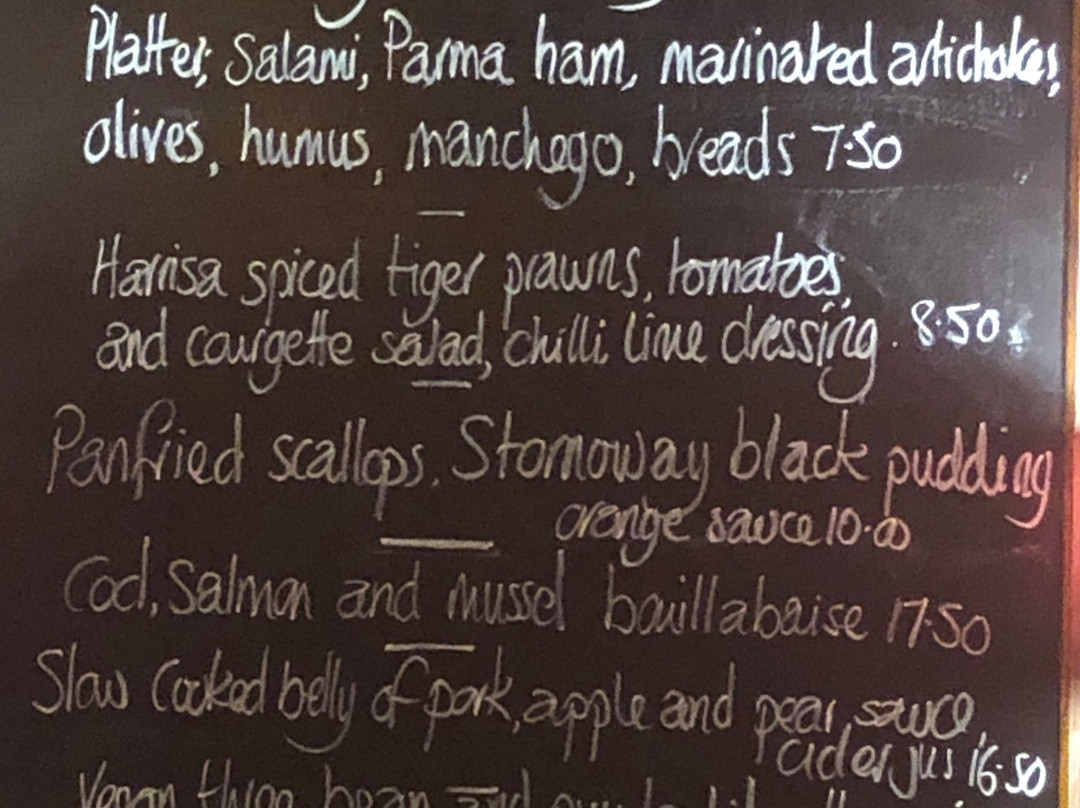 Platter; Salami, Parma ham, marinated artichokes,
olives, humus, manchego, breads 7.50
Harrisa spiced tiger prawns, tomatoes,
and courgette salad, chilli lime dressing. 8.50
Panfried scallops. Stornoway black pudding
orange sauce 10.00
Cod, Salmon and mussel bouillabaise 17.50
Slow Cooked belly of pork, apple and pear sauce,
cider jus 16.50
Vegan three bean and